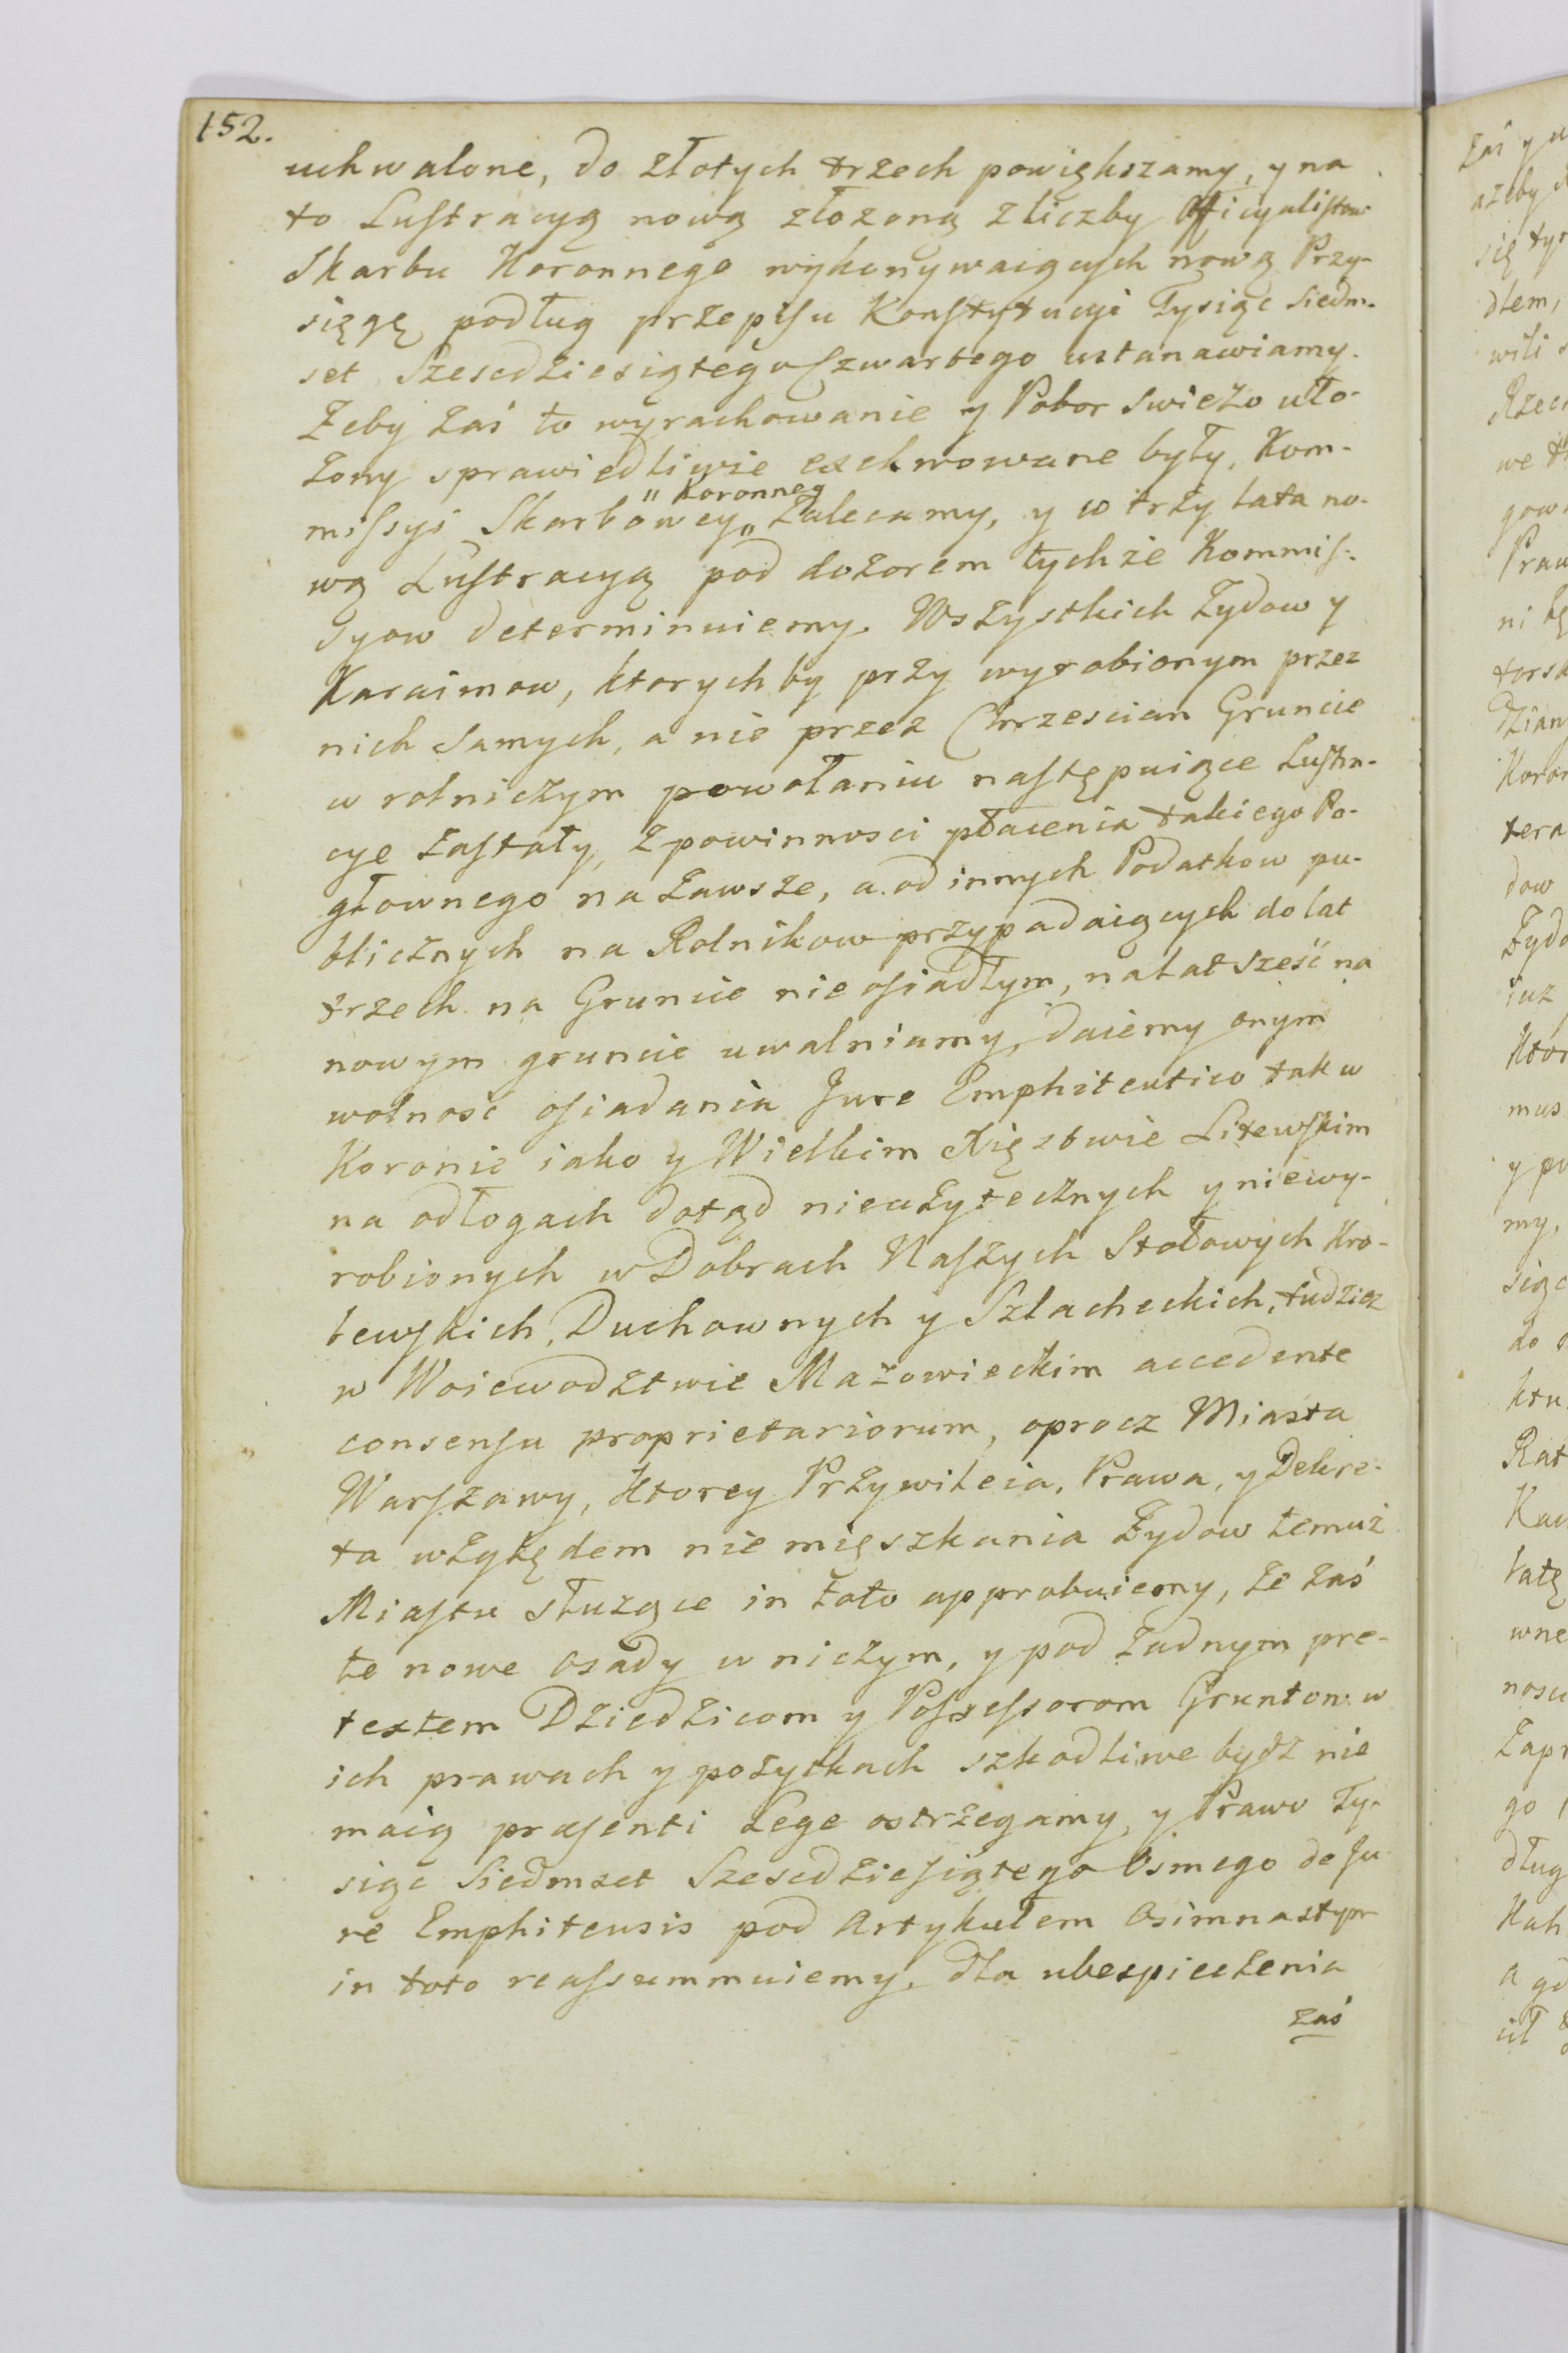 152.
uchwalone, do złotych trzech powiększamy, y na
to Lustracyą nową złozoną z liczby Officyalistow
Skarbu Koronnego wykonywaiących nową Przy-
sięgę podług przepisu Konstytucyi Tysiąc Siedm-
set Szescdziesiątego Czwartego ustanawiamy.
Zeby zaś to wyrachowanie y Pobor swiezo uło-
zony sprawiedliwie exekwowane były, Kom-
" Koronney
missyi Skarbowey „ Zalecamy, y w trzy lata no-
wą Lustracyą pod dozorem tychze Kommis-
syow determinuiemy. Wszystkich Zydow y
Karaimow, ktorych by przy wyrobionym przez
nich Samych, a nie przez Chrzescian Gruncie
w rolniczym powołaniu następuiące Lustra-
cye zastały, z powinnosci płacenia takiego Po-
głownego na zawsze, a od innych Podatkow pu-
blicznych na Rolnikow przypadaiących do lat
trzech na Gruncie nie osiadłym, na lat sześć na
nowym gruncie uwalniamy, daiemy onym
wolność osiadania Jure Emphiteutico tak w
Koronie iako y Wielkim Xięstwie Litewskim
na odłogach dotąd nieuzytecznych y niewy-
robionych w Dobrach Naszych Stołowych Kro-
lewskich, Duchownych y Szlacheckich, tudziez
w Woiewodztwie Mazowieckim accedente
consensu proprietariorum, oprocz Miasta
Warszawy, ktorey Przywileia, Prawa, y Dekre-
ta względem nie mięszkania Zydow temuz
Miastu słuzące in toto approbuiemy, ze zaś
te nowe osady w niczym, y pod zadnym pre-
textem Dziedzicom y Possessorom Gruntow w
ich prawach y pozytkach szkodliwe bydz nie
maią præsenti Lege ostrzegamy, y Prawo Ty-
siąc Siedmset Szescdziesiątego Osmego de Ju-
re Emphiteusis pod Artykułem Osimnastym
in toto reassummuiemy, dla ubezpieczenia
zaś